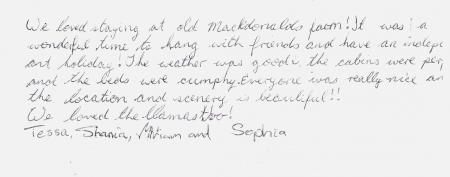 We loved staying at old Mackdonalds farm! It was a
wonderful time to hang with friends and have an indepe
ant holiday! The weather was good, the cabins were per
and the beds were cumphy. Everyone was really nice an
the location and scenery is beautiful!!
We loved the llamas too!
Tessa, Shania, and Sophia